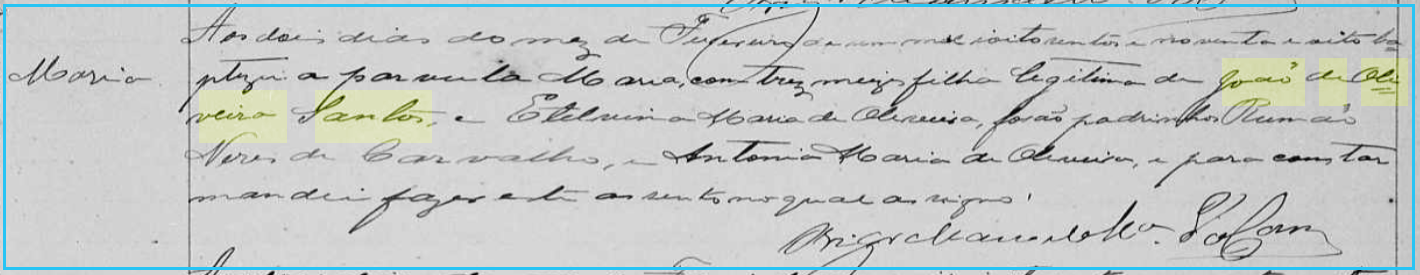 Aos dois dias do mez de Fevereiro de um mil e oitocentos e noventa e oito ba
Maria
ptizei a parvula Maria, com trez mezes filha legitima de João de Oli
veira Santos, e Etelvina Maria de Oliveira, forão padrinhos Rumão
Neres de Carvalho, e Antonia Maria de Oliveira, e para constar
mandei fazer este assento no qual assigno.